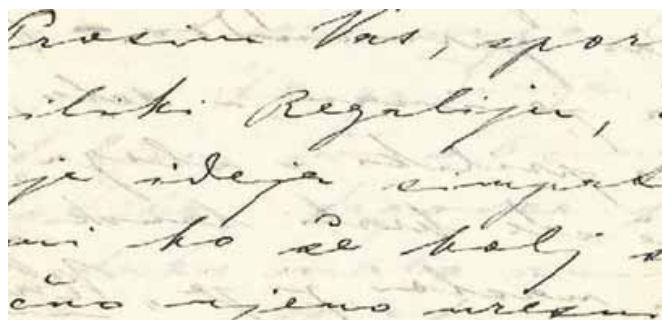 Prosim Vas, spor
iliki Regaliju,
je ideja simpat
mi ko še bolj s
čno njeno uresni